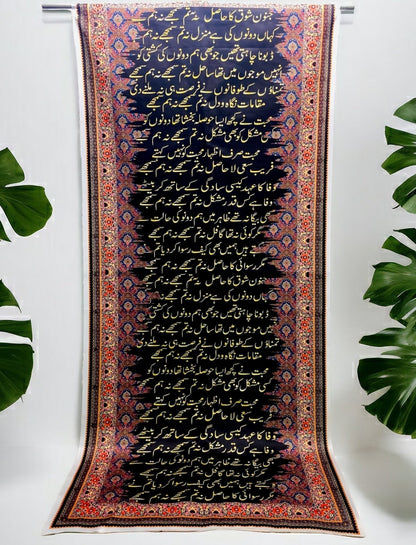 جنون شوق کا حاصل نہ تم سمجھے نہ ہم سمجھے
کہاں دونوں کی ہے منزل نہ تم سمجھے نہ ہم سمجھے
ڈبونا چاہتی تھیں جو بھی ہم دونوں کی کشتی کو
انہیں موجوں میں تھا ساحل نہ تم سمجھے نہ ہم سمجھے
تمناؤں کے طوفانوں نے فرصت ہی نہ ملنے دی
مقامات نگاہ و دل نہ تم سمجھے نہ ہم سمجھے
محبت نے کچھ ایسا حوصلہ بخشا تھا دونوں کو
کسی مشکل کو بھی مشکل نہ تم سمجھے نہ ہم سمجھے
محبت صرف اظہار محبت کو نہیں کہتے
فریب سعی لا حاصل نہ تم سمجھے نہ ہم سمجھے
وفا کا عہد کیسی سادگی کے ساتھ کر بیٹھے
وفا ہے کس قدر مشکل نہ تم سمجھے نہ ہم سمجھے
بھی بیگانہ تھے ظاہر میں ہم دونوں کی حالت سے
مگر کوئی نہ تھا غافل نہ تم سمجھے نہ ہم سمجھے
ہیں ہمیں بھی کیف رسوا کر دیا تم نے
مگر رسوائی کا حاصل نہ تم سمجھے نہ ہم سمجھے
جنون شوق کا حاصل نہ تم سمجھے نہ ہم سمجھے
کہاں دونوں کی ہے منزل نہ تم سمجھے نہ ہم سمجھے
ڈبونا چاہتی تھیں جو بھی ہم دونوں کی کشتی کو
انہیں موجوں میں تھا ساحل نہ تم سمجھے نہ ہم سمجھے
تمناؤں کے طوفانوں نے فرصت ہی نہ ملنے دی
مقامات نگاہ و دل نہ تم سمجھے نہ ہم سمجھے
محبت نے کچھ ایسا حوصلہ بخشا تھا دونوں کو
کسی مشکل کو بھی مشکل نہ تم سمجھے نہ ہم سمجھے
محبت صرف اظہار محبت کو نہیں کہتے
فریب سعی لا حاصل نہ تم سمجھے نہ ہم سمجھے
وفا کا عہد کیسی سادگی کے ساتھ کر بیٹھے
وفا ہے کس قدر مشکل نہ تم سمجھے نہ ہم سمجھے
بھی بیگانہ تھے ظاہر میں ہم دونوں کی حالت سے
مگر کوئی نہ تھا غافل نہ تم سمجھے نہ ہم سمجھے
ہیں ہمیں بھی کیف رسوا کر دیا تم نے
مگر رسوائی کا حاصل نہ تم سمجھے نہ ہم سمجھے